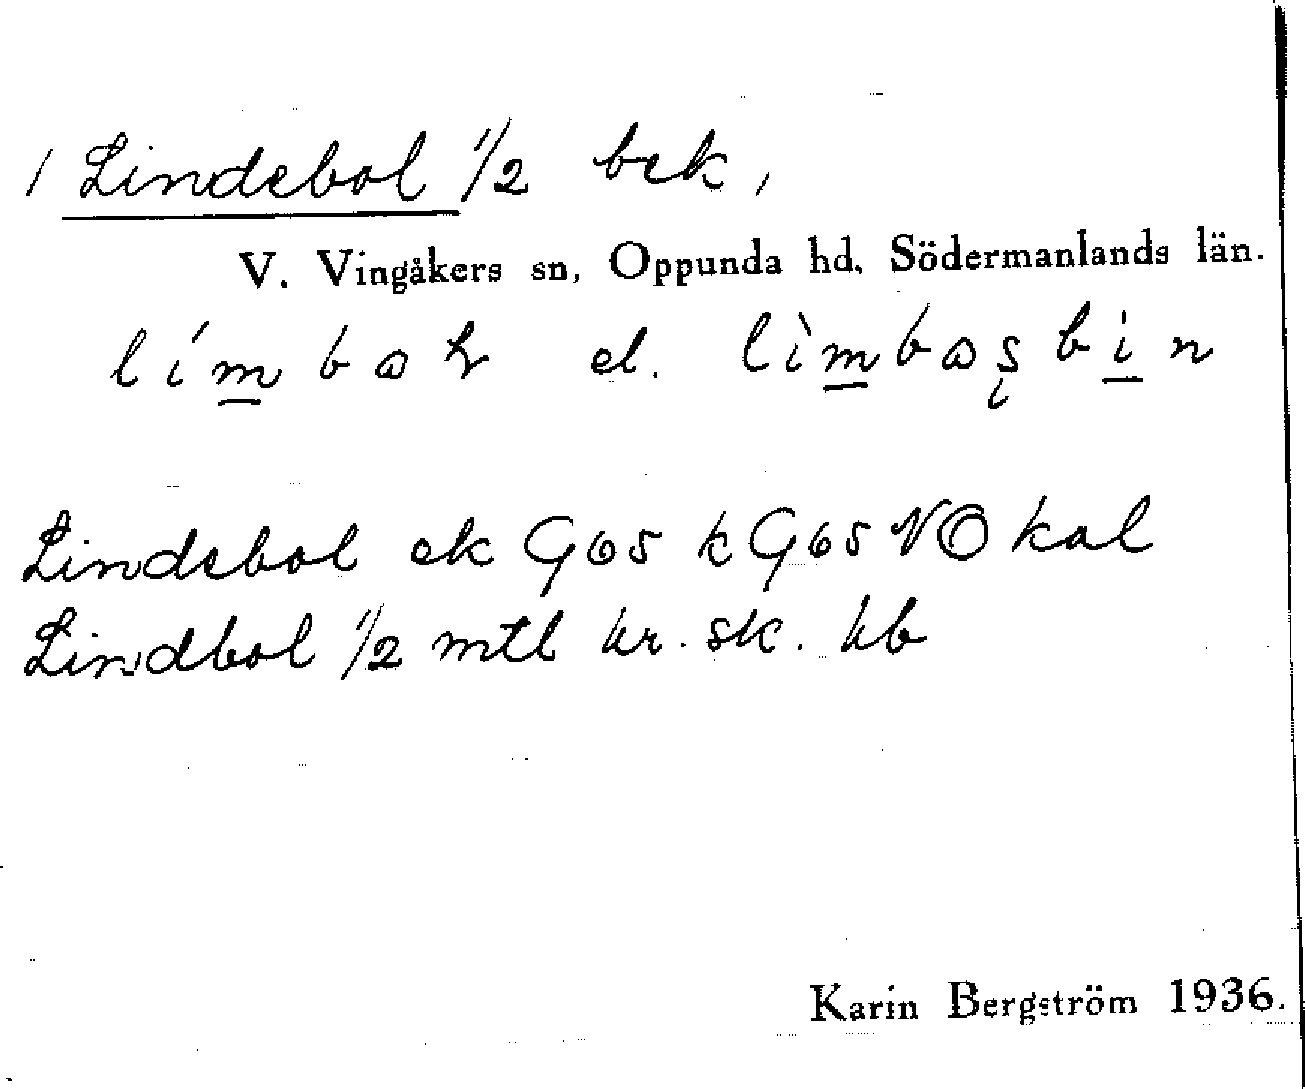 / Lindebol 1/2 bek,
V. Vingåkers sn, Oppunda hd. Södermanlands län.
lím̲ba el. lìm̲b
Lindebol ek G65 k G65 NO kal
Lindbol 1/2 mtl kr. sk. kb
Karin Bergström 1936.